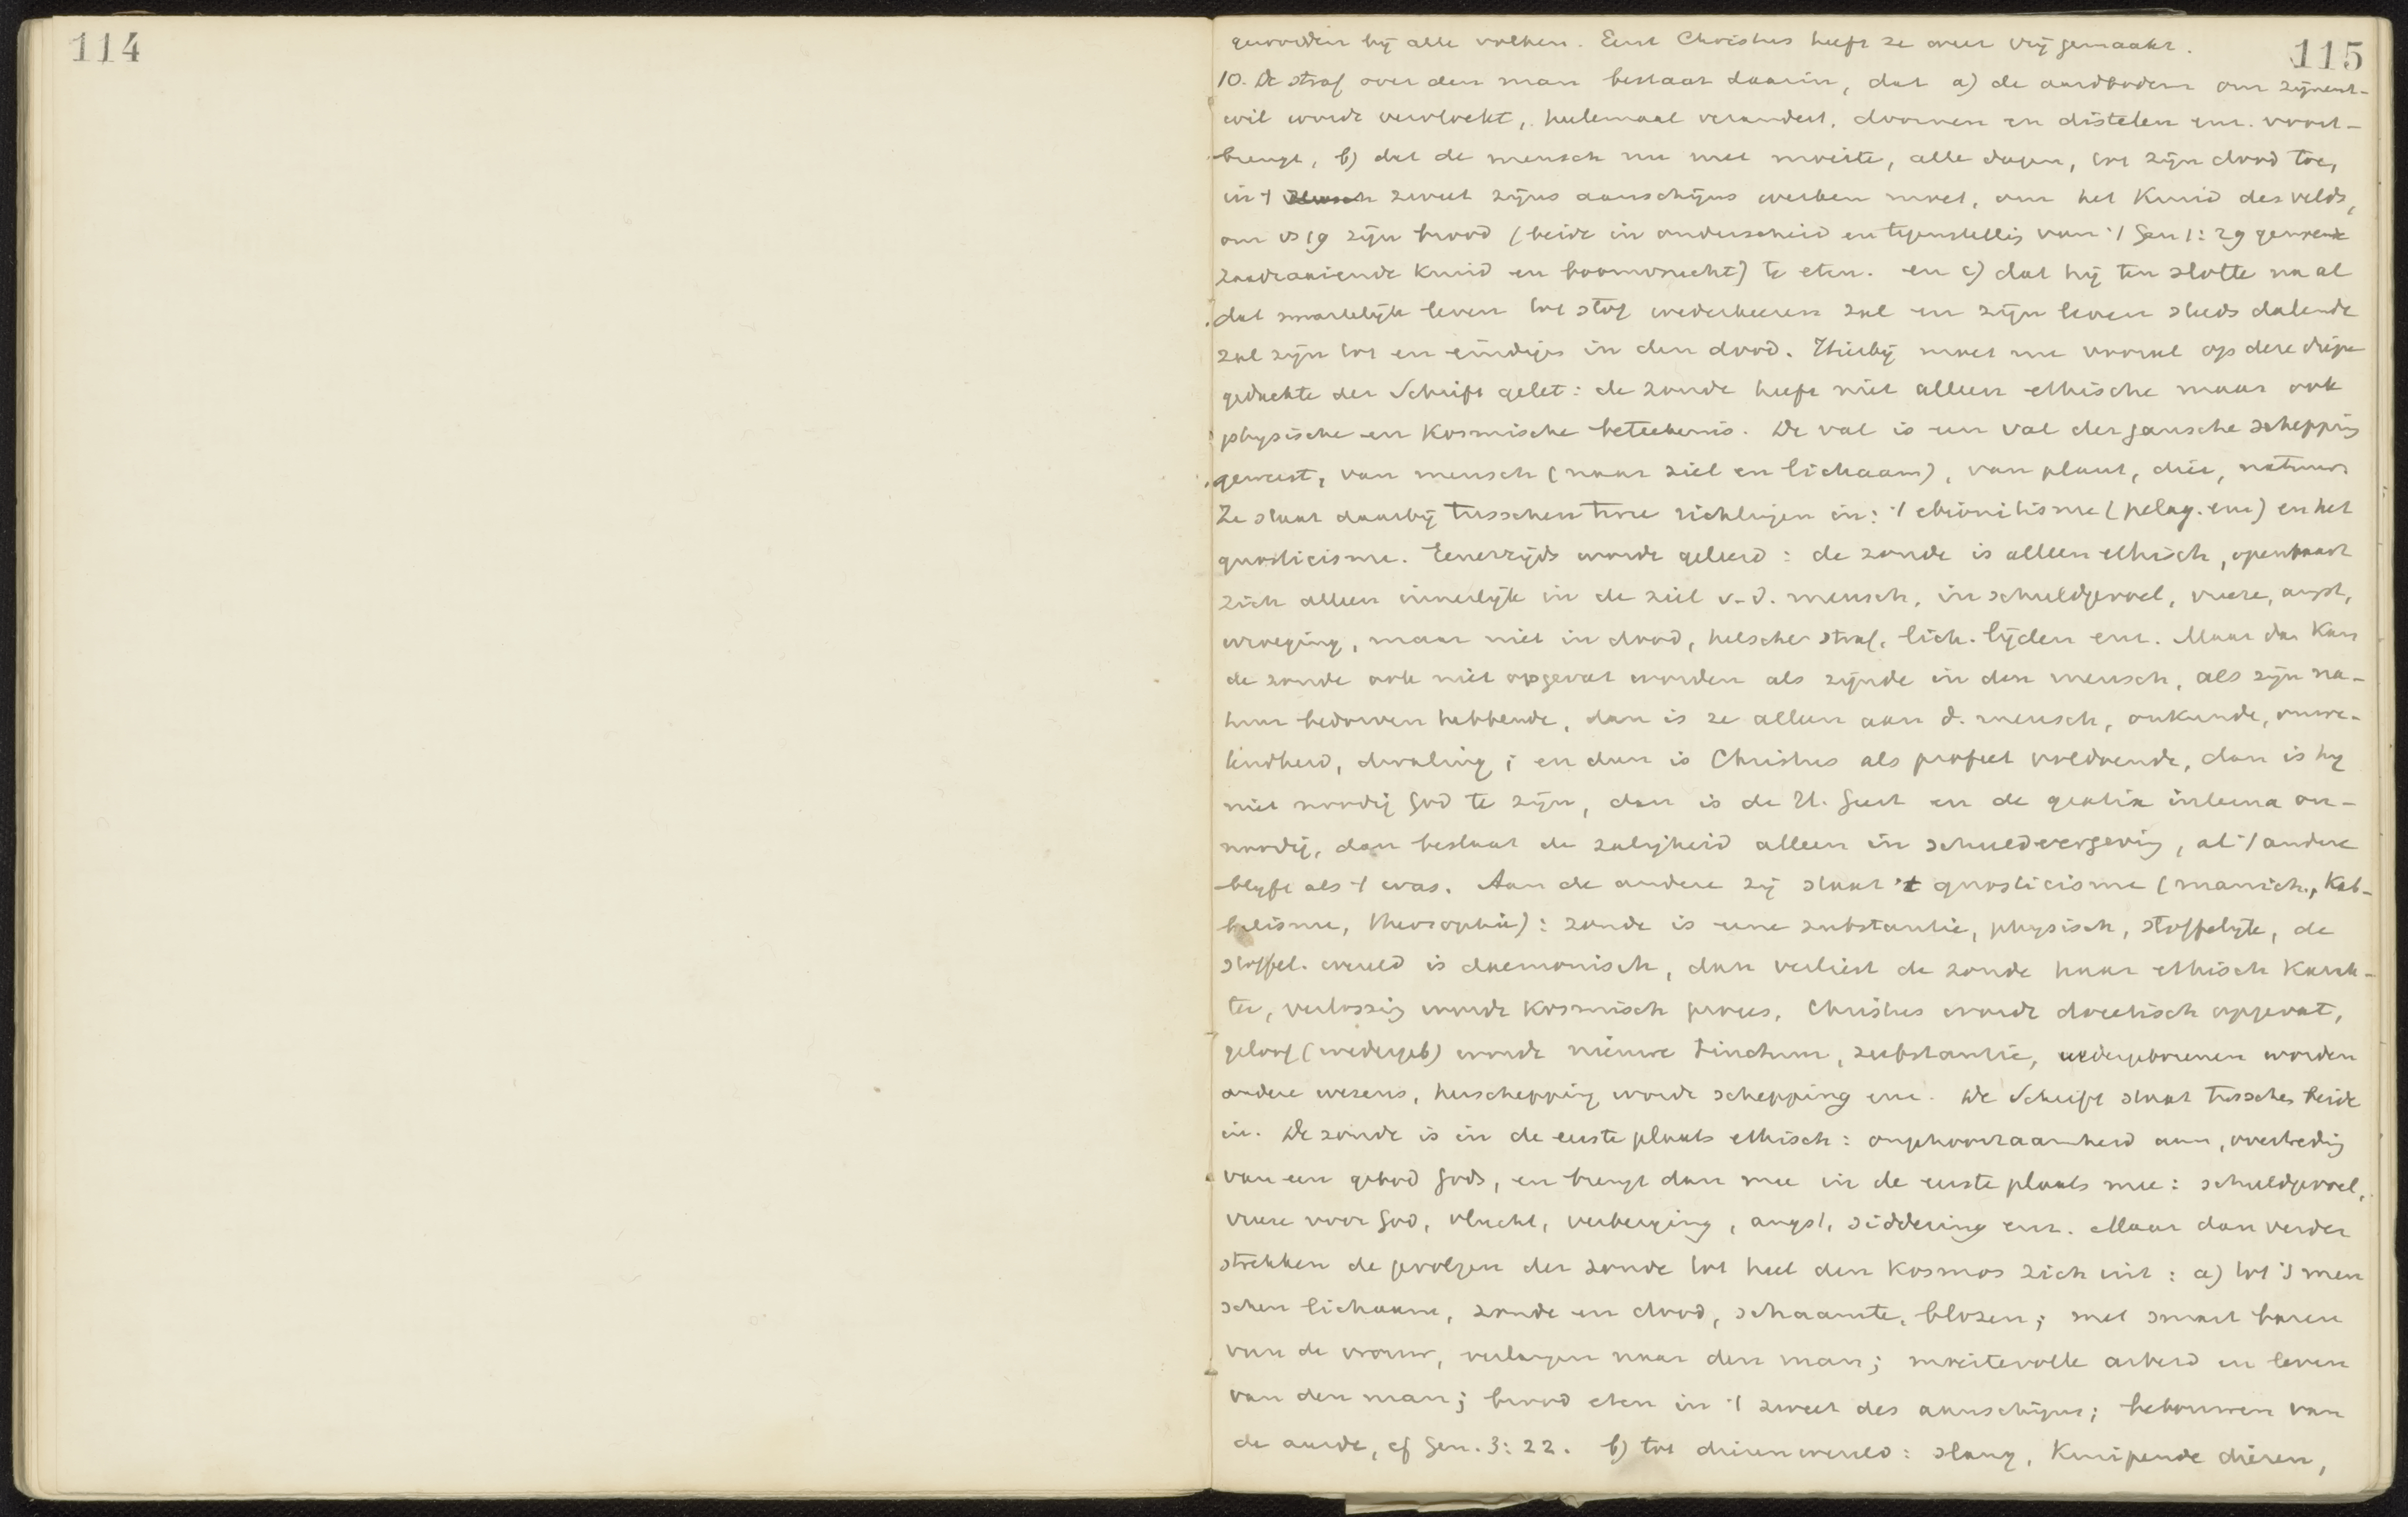 114
115
geworden bij alle volken. Eerst Christus heeft ze weer vrij gemaakt.
10. De straf over den man bestaat daarin, dat a) de aardbodem om zijnent-
wil wordt vervloekt, heelemaal verandert, doornen en distelen enz. voort-
brengt, b) dat de mensch nu met moeite, alle dagen, tot zijn dood toe,
in 't zweet zijns aanschijns werken moet, om het kruid des velds,
om vs 19 zijn brood (beide in onderscheid en tegenstellig van 't Gen 1:29 genoemde
zaadzaaiende kruid en boomvrucht) te eten. en c) dat hij ten slotte na al
dat smartelijk leven tot stof wederkeeren zal en zijn leven steeds dalende
zal zijn tot en eindigen in den dood. Hierbij moet nu vooral op deze diepe
gedachte der Schrift gelet: de zonde heeft niet alleen ethische maar ook
physische en kosmische beteekenis. De val is een val der gansche schepping
geweest, van mensch (naar ziel en lichaam), van plant, dier, natuur.
Ze staat daarbij tusschen twee richtingen in: 't ebionitisme (pelag. enz) en het
gnosticisme. Eenerzijds wordt geleerd: de zonde is alleen ethisch, openbaart
zich alleen innerlijk in de ziel v. d. mensch, in schuldgevoel, vreeze, angst,
wroeging, maar niet in dood, helsche straf, lich. lijden enz. Maar dan kan
de zonde ook niet opgevat worden als zijnde in den mensch, als zijn na-
tuur bedorven hebbende, dan is ze alleen aan d. mensch, onkunde, onwe-
tendheid, dwaling; en dan is Christus als profeet voldoende, dan is hij
niet noodig God te zijn, dan is de H. Geest en de gratia interna on-
noodig, dan bestaat de zaligheid alleen in schuldvergeving, al 't andere
blijft als 't was. Aan de andere zij staat 't gnosticisme (manich., Kab-
balisme, theosophie): zonde is eene substantie, physisch, stoffelijk, de
stoffel. wereld is daemonisch, dan verliest de zonde haar ethisch karak-
ter, verlossing wordt kosmisch proces, Christus wordt docetisch opgevat,
geloof (wedergeb) wordt nieuwe tinctuur, substantie, wedergeborenen worden
andere wezens, herschepping wordt schepping enz. De Schrift staat tusschen beide
in. De zonde is in de eerste plaats ethisch: ongehoorzaamheid aan, overtreding
van een gebod Gods, en brengt dan mee in de eerste plaats mee: schuldgevoel,
vreeze voor God, vlucht, verberging, angst, siddering enz. Maar dan verder
strekken de gevolgen der zonde tot heel den kosmos zich uit: a) tot 's men
schen lichaam, zonde en dood, schaamte, blozen; met smart baren
van de vrouw, verlangen naar den man; moeitevolle arbeid en leven
van den man; brood eten in 't zweet des aanschijns; bebouwen van
de aarde, cf Gen. 3:22. b) tot dierenwereld: slang, kruipende dieren,